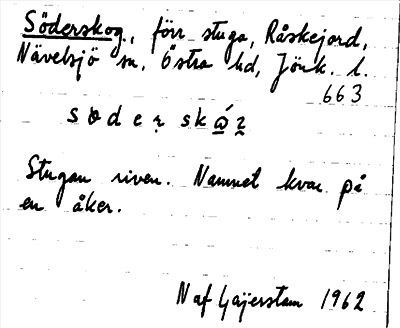 Söderskog, förr stuga, Råskejord,
Nävelsjö sn, Östra hd, Jönk. l.
663
Stugan riven. Namnet kvar på
en åker.
N af Gajerstam 1962